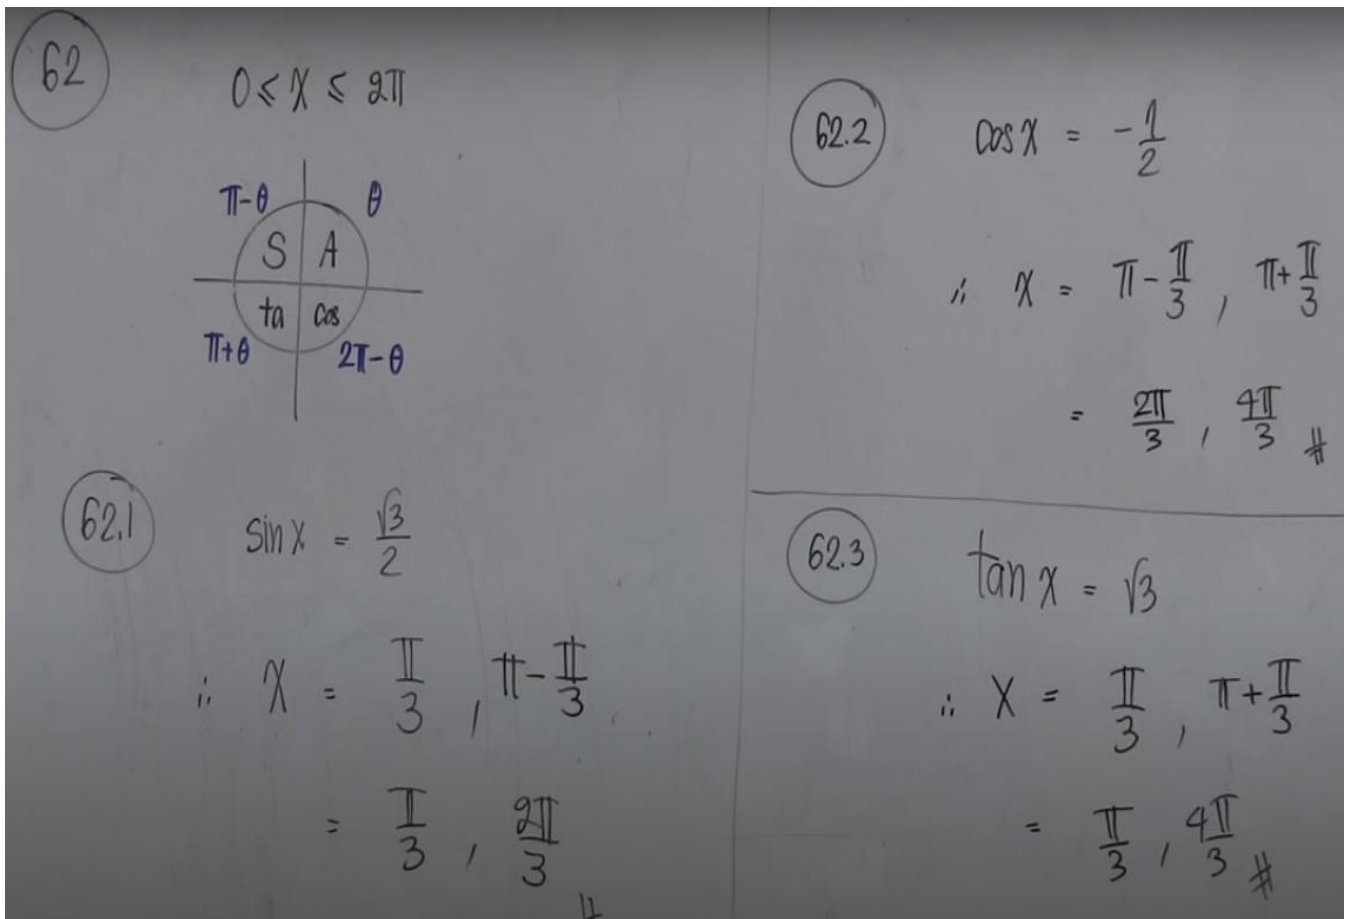 62
0 ≤ x ≤ 2π
π-θ θ
S A
ta cos
π+θ 2π-θ
62.1
sin x = √3/2
∴ x = π/3 , π - π/3
= π/3 , 2π/3 #
62.2
cos x = -1/2
∴ x = π - π/3 , π + π/3
= 2π/3 , 4π/3 #
62.3
tan x = √3
∴ x = π/3 , π + π/3
= π/3 , 4π/3 #